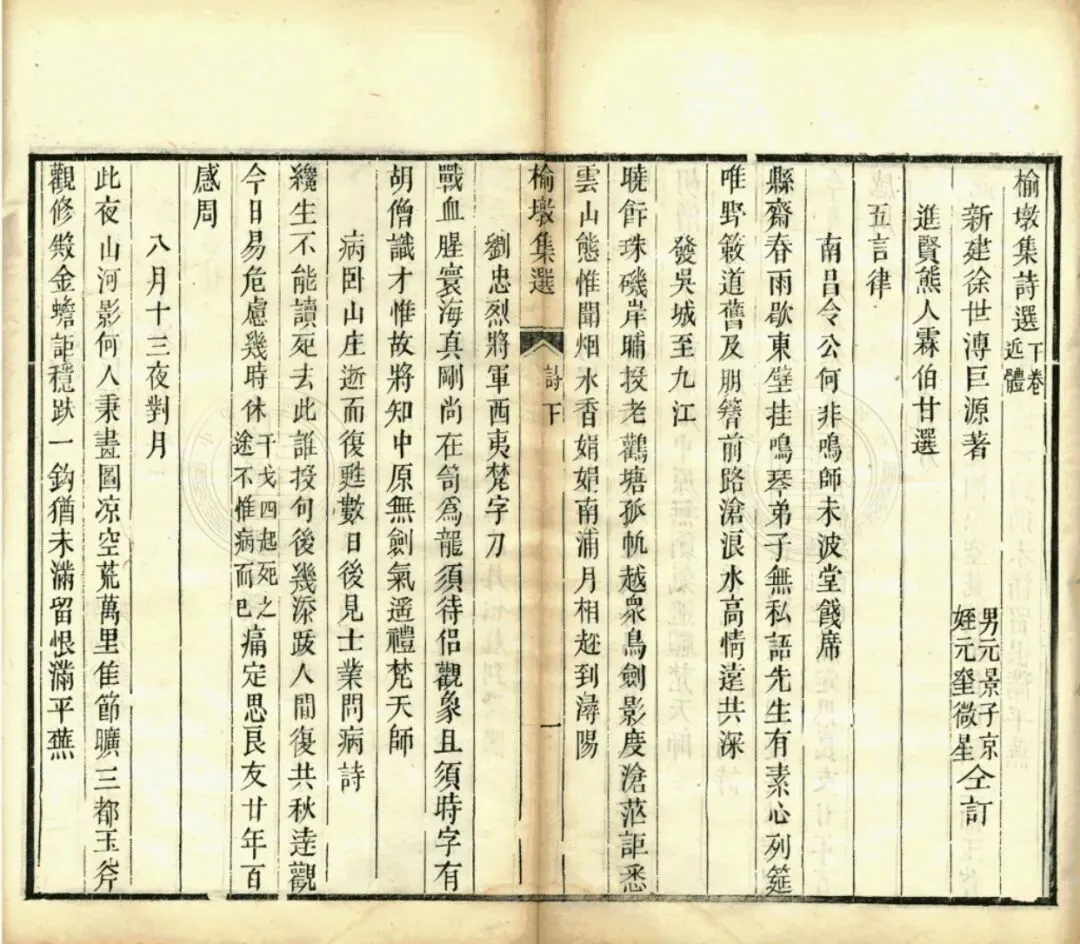 榆墩集詩選 下卷 近體
新建徐世溥巨源著
男元景子京
姪元壐微星
仝訂
進賢熊人霖伯甘選
五言律
南昌令公何非鳴師未波堂餞席
縣齋春雨歇東壁挂鳴琴弟子無私語先生有素心列筵
唯野簌道舊及朋簪前路滄浪水高情遠共深
發吳城至九江
曉飰珠磯岸晡投老鸛塘孤帆越衆鳥劍影度滄茫詎悉
雲山態惟聞烟水香娟娟南浦月相趂到潯陽
榆墩集選
詩下
一
劉忠烈將軍西夷梵字刀
戰血腥寰海真剛尚在笥爲龍須待侶觀象且須時字有
胡僧識才惟故將知中原無劍氣遥禮梵天師
病卧山庄逝而復甦數日後見士業問病詩
纔生不能讀死去此誰投句後幾添跋人間復共秋逹觀
今日易危慮幾時休
干戈四起死之
途不惟病而已
痛定思良友廿年百
感周
八月十三夜對月
此夜山河影何人秉畫圖凉空荒萬里佳節曠三都玉斧
觀修燬金蟾詎穩趺一鈎猶未滿留恨滿平蕪